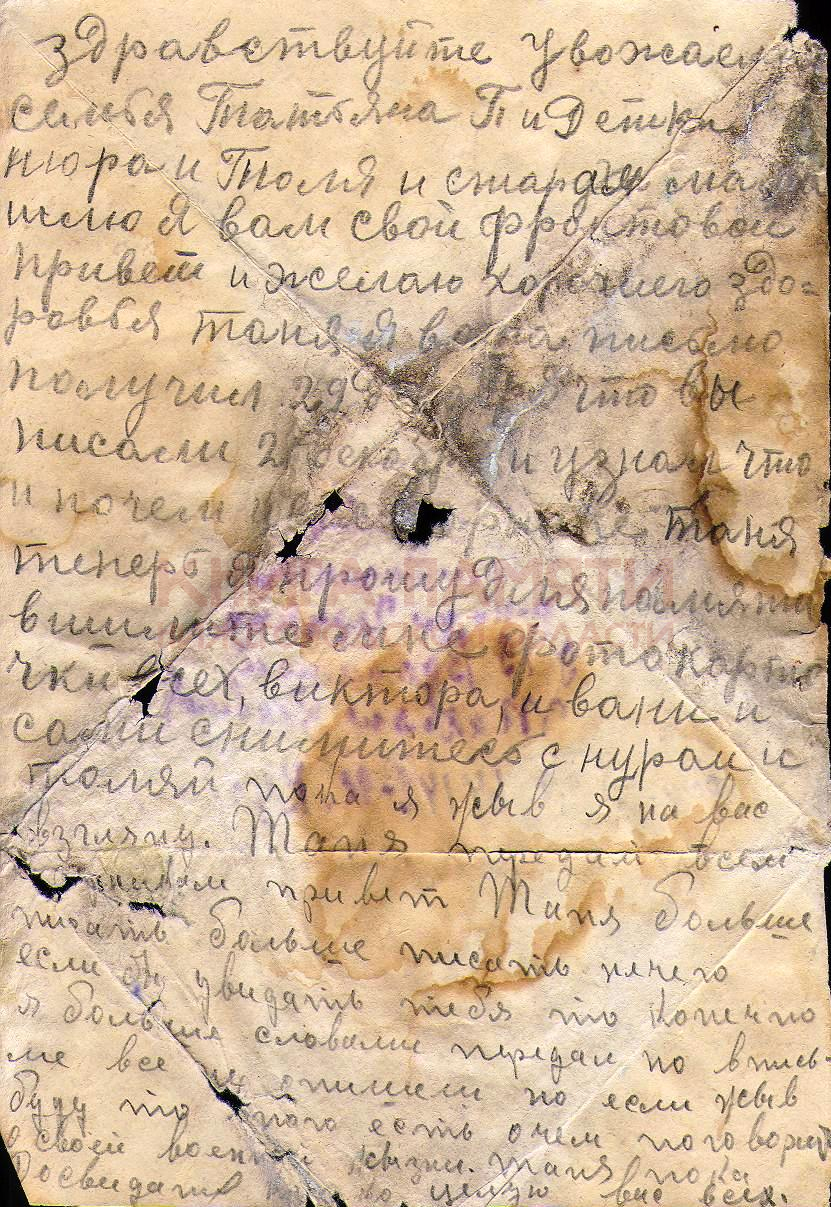 здравствуйте уважаемая
семья Татьяна П и Детки
нюра и Толя и старая мама
шлю я вам свой фронтовои
привет и желаю хорошего здо=
ровья таня я ваша письмо
получил 29 что вы
писали 25 декабря и узнал что
и почем таня
теперь я прошу Для памяти
вишлите мне фотокарто
чки всех, виктора, и вани и
сами снимитесь с нурои и
толяй пока я жыв я на вас
взгляну. Таня передай всем
привет Таня больше
писать больше писать нечего
если бы увидать тебя то конечно
я больше словами передал но вписЬ-
ме все не опишеш но если жыв
буду то много есть очем поговорит
о своей военной жызни. таня пока
Досвидания целую вас всех.
КНИГА ПАМЯТИ